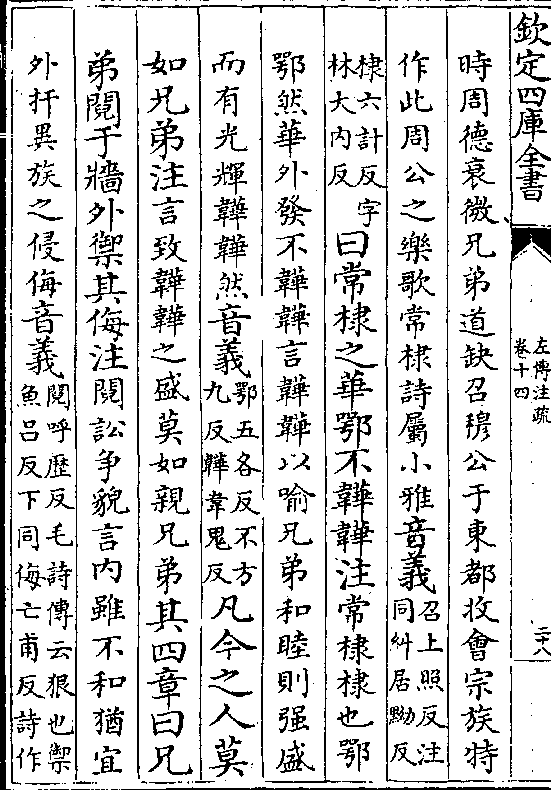 欽定四庫全書
左傳注疏
卷十四
二十八
時周德衰微兄弟道缺召穆公于東都收會宗族特
作此周公之樂歌常棣詩屬小雅音義召上照反注
同糾居黝反
棣六計反字
林大内反曰常棣之華鄂不韡韡注常棣棣也鄂
鄂然華外發不韡韡言韡韡以喻兄弟和睦則强盛
而有光輝韡韡然音義鄂五各反不方
九反韡韋鬼反凡今之人莫
如兄弟注言致韡韡之盛莫如親兄弟其四章曰兄
弟鬩于牆外禦其侮注鬩訟争貌言内雖不和猶宜
外扞異族之侵侮音義鬩呼歴反毛詩傳云狠也禦
魚吕反下同侮亡甫反詩作